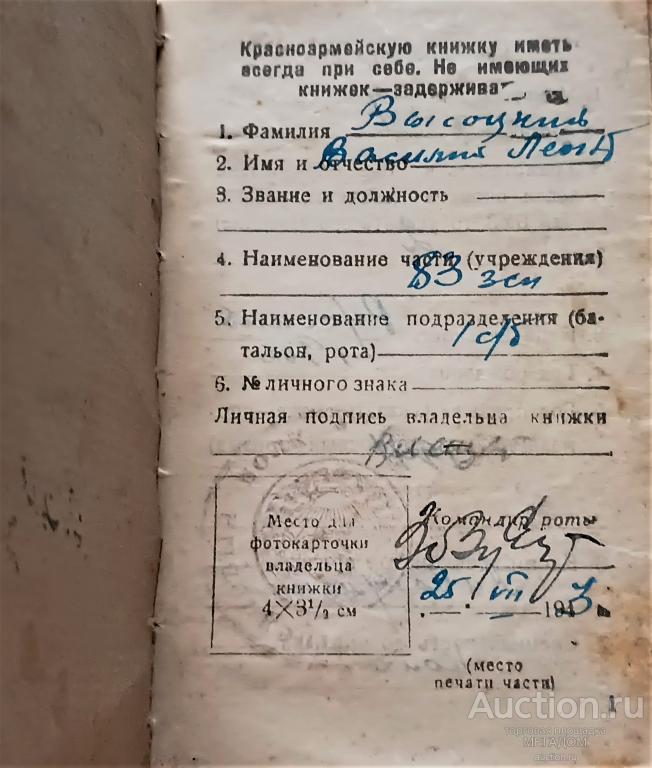 Красноармейскую книжку иметь
всегда при себе. Не имеющих
книжек—задержива
1. Фамилия Высоцкий
2. Имя и отчество Василий Леонт
3. Звание и должность
4. Наименование части (учреждения)
83 зсп
5. Наименование подразделения (ба-
тальон, рота) 1 с/б
6. № личного знака
Личная подпись владельца книжки
Место для
фотокарточки
владельца
книжки
4×3½ см
Командир роты
25 VII 1943
(место
печати части)
1
Auction.ru
торговая площадка
МЕТАДОМ
auction.ru